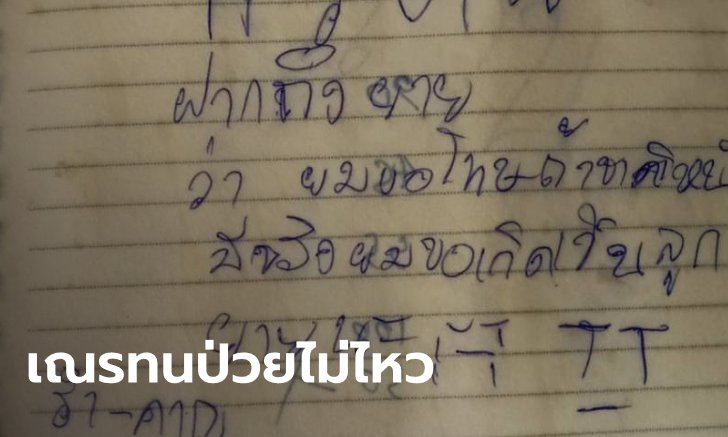 ฝากถึง ยาย
ว่า ผมขอโทษถ้าชาติหน้
มีจริงผมขอเกิดเป็นลูก
ยาย TT
เณรทนป่วยไม่ไหว